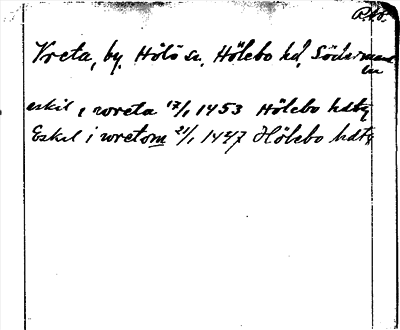 R.Ab.
Vreta, by. Hölö sn. Hölebo hd, Söderman
in
eskil i wreta 17/1 1453 Hölebo hdtg
Eskil i wretom 21/1 1447 Hölebo hdtg